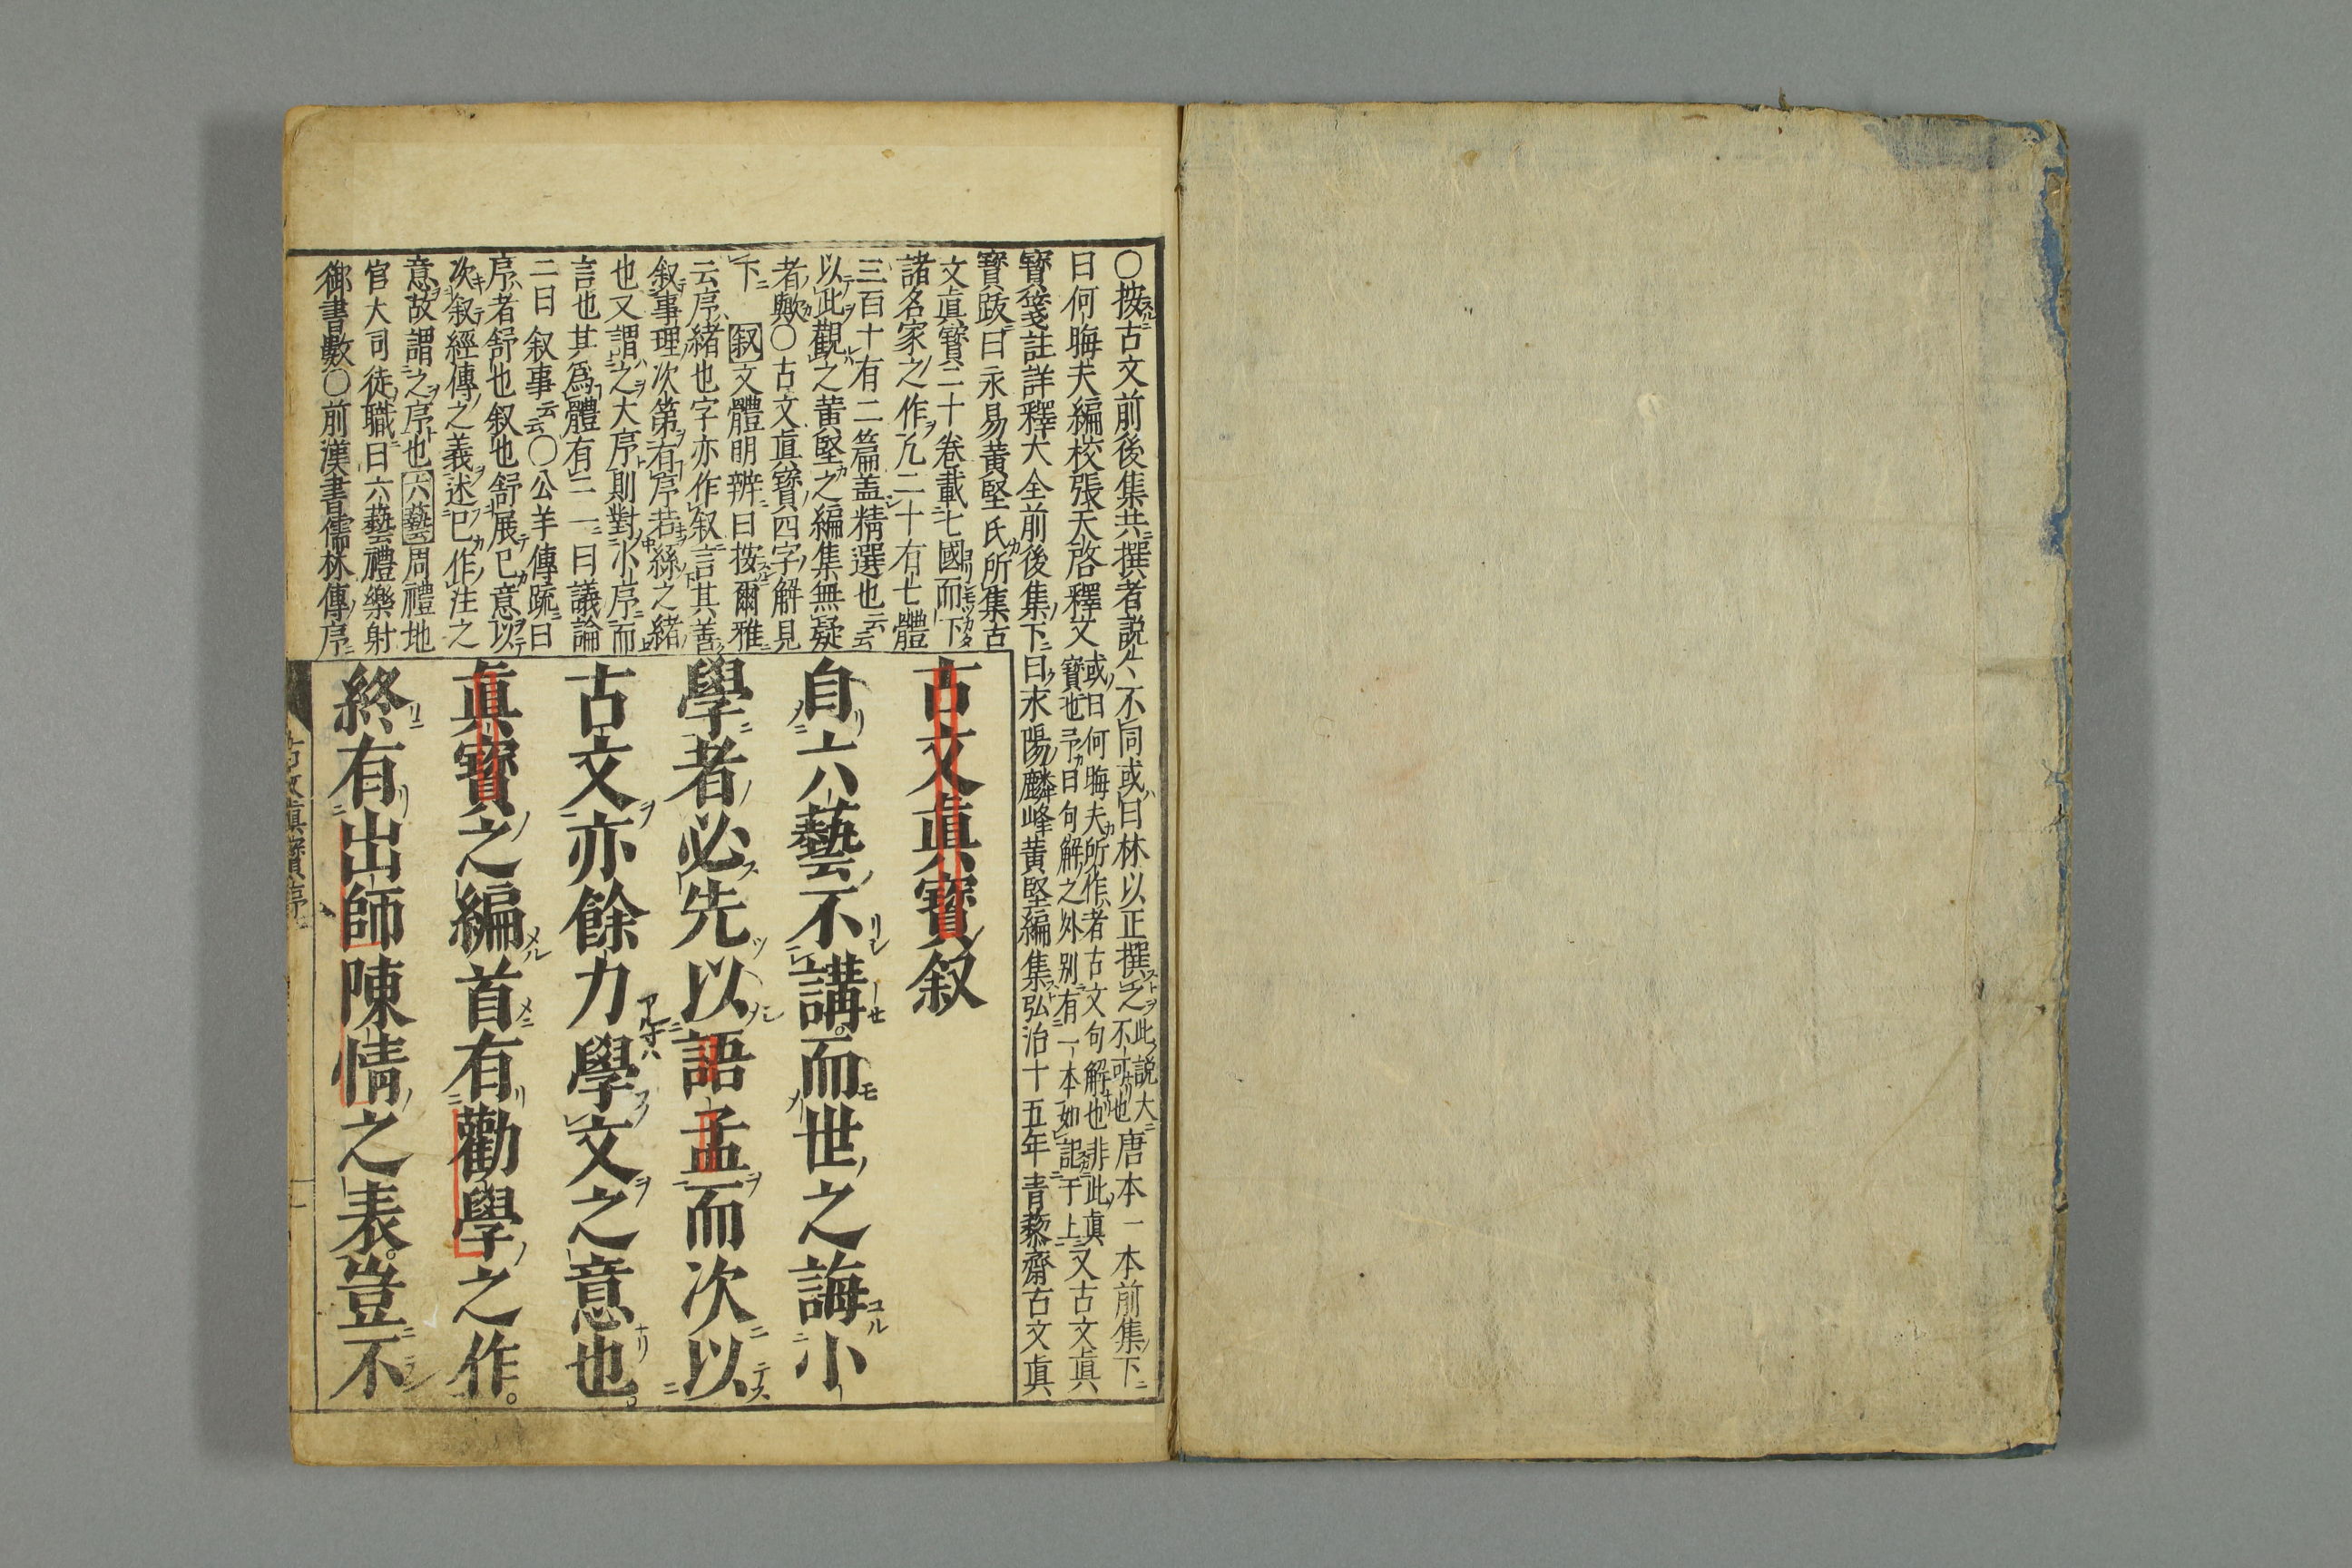 〇按古文前後集共撰者説〻不同或曰林以正撰之此説大不可也唐本一本前集下
曰何晦夫編校張天啓釋文或曰何晦夫所作者古文句解也非此眞寶也予曰句解之外別有一本如記于上又古文眞
寶箋註詳釋大全前後集下曰末陽麟峰黄堅編集弘治十五年青藜齋古文眞
寶跋曰永易黄堅氏所集古
文眞寶二十卷載七國而下
諸名家之作凡二十有七體
三百十有二篇盖精選也云云
以此觀之黄堅之編集無疑
者歟〇古文眞寶四字解見
下 叙文體明辨曰按爾雅
云序緒也字亦作叙言其善
叙事理次第有序若絲之緒
也又謂之大序則對小序而
言也其爲體有二一曰議論
二曰叙事云云〇公羊傳疏曰
序者舒也叙也舒展已意以
次叙經傳之義述已作注之
意故謂之序也六藝周禮地
官大司徒職曰六藝禮樂射
御書數〇前漢書儒林傳序
古文眞寶叙
自六藝不講。而世之誨小
學者必先以語孟而次以
古文亦餘力學文之意也。
眞寶之編首有勸學之作。
終有出師陳情之表。豈不
古文眞寶序